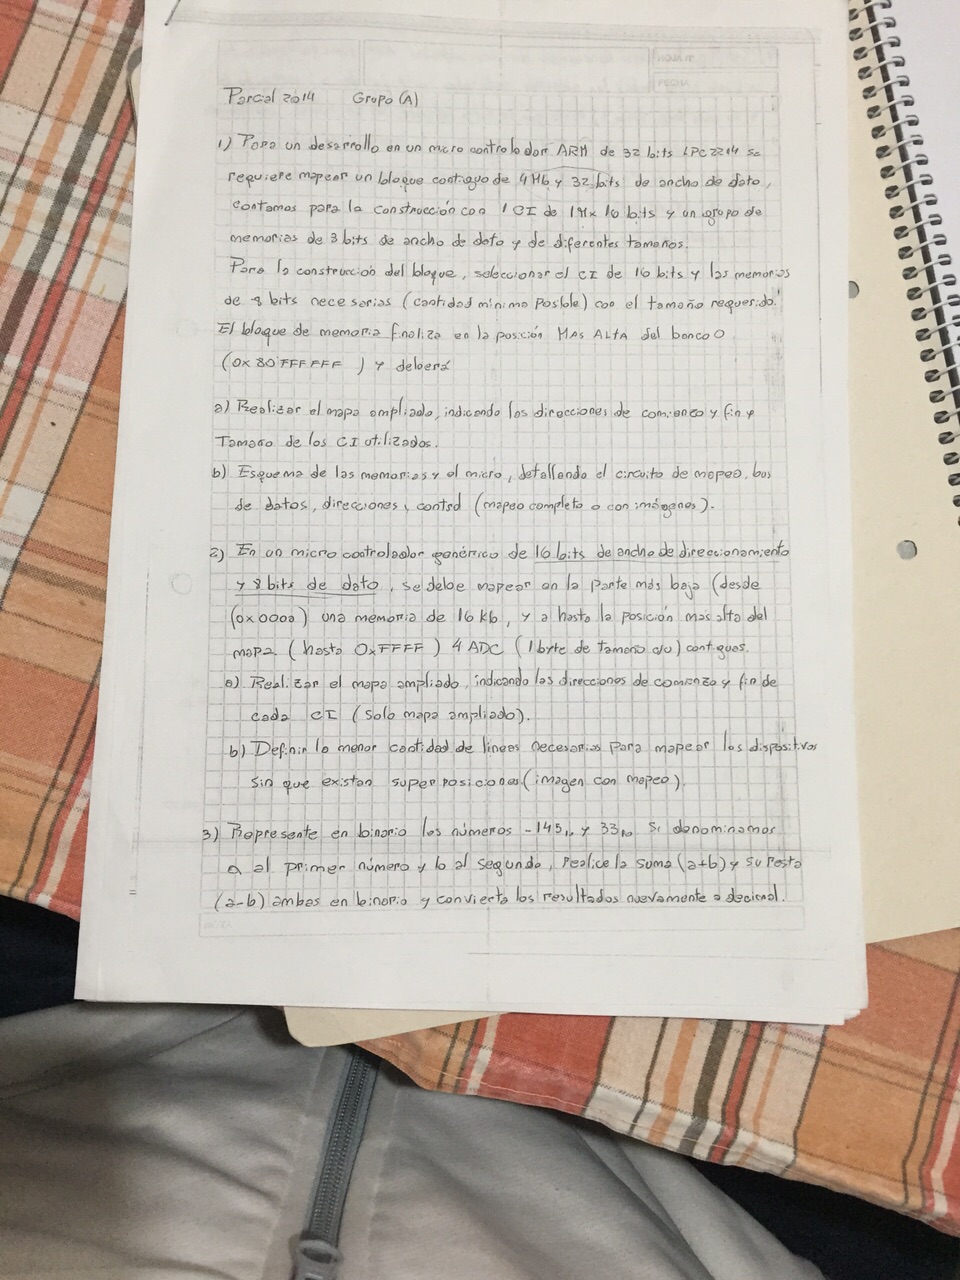 HOJA Nº
FECHA
Parcial 2014 Grupo (A)
1) Para un desarrollo en un micro controlador ARM de 32 bits LPC2214 se
requiere mapear un bloque contiguo de 4Mb y 32 bits de ancho de dato,
contamos para la construcción con 1 CI de 1M x 16 bits y un grupo de
memorias de 8 bits de ancho de dato y de diferentes tamaños.
Para la construcción del bloque, seleccionar el CI de 16 bits y las memorias
de 8 bits necesarias (cantidad mínima posible) con el tamaño requerido.
El bloque de memoria finaliza en la posición MAS ALTA del banco 0
(0x80FFFFFF) y deberá
a) Realizar el mapa ampliado, indicando las direcciones de comienzo y fin y
Tamaño de los CI utilizados.
b) Esquema de las memorias y el micro, detallando el circuito de mapeo, bus
de datos, direcciones y control (mapeo completo o con imágenes).
2) En un micro controlador genérico de 16 bits de ancho de direccionamiento
y 8 bits de dato, se debe mapear en la parte más baja (desde
(0x0000) una memoria de 16 kb, y a hasta la posición mas alta del
mapa (hasta 0xFFFF) 4 ADC (1 byte de tamaño c/u) contiguos.
a) Realizar el mapa ampliado, indicando las direcciones de comienzo y fin de
cada CI (solo mapa ampliado).
b) Definir la menor cantidad de lineas necesarias para mapear los dispositivos
sin que existan superposiciones (imagen con mapeo).
3) Represente en binario los números -145₁₀ y 33₁₀ si denominamos
a al primer número y b al segundo, realice la suma (a+b) y su resta
(a-b) ambas en binario y convierta los resultados nuevamente a decimal.